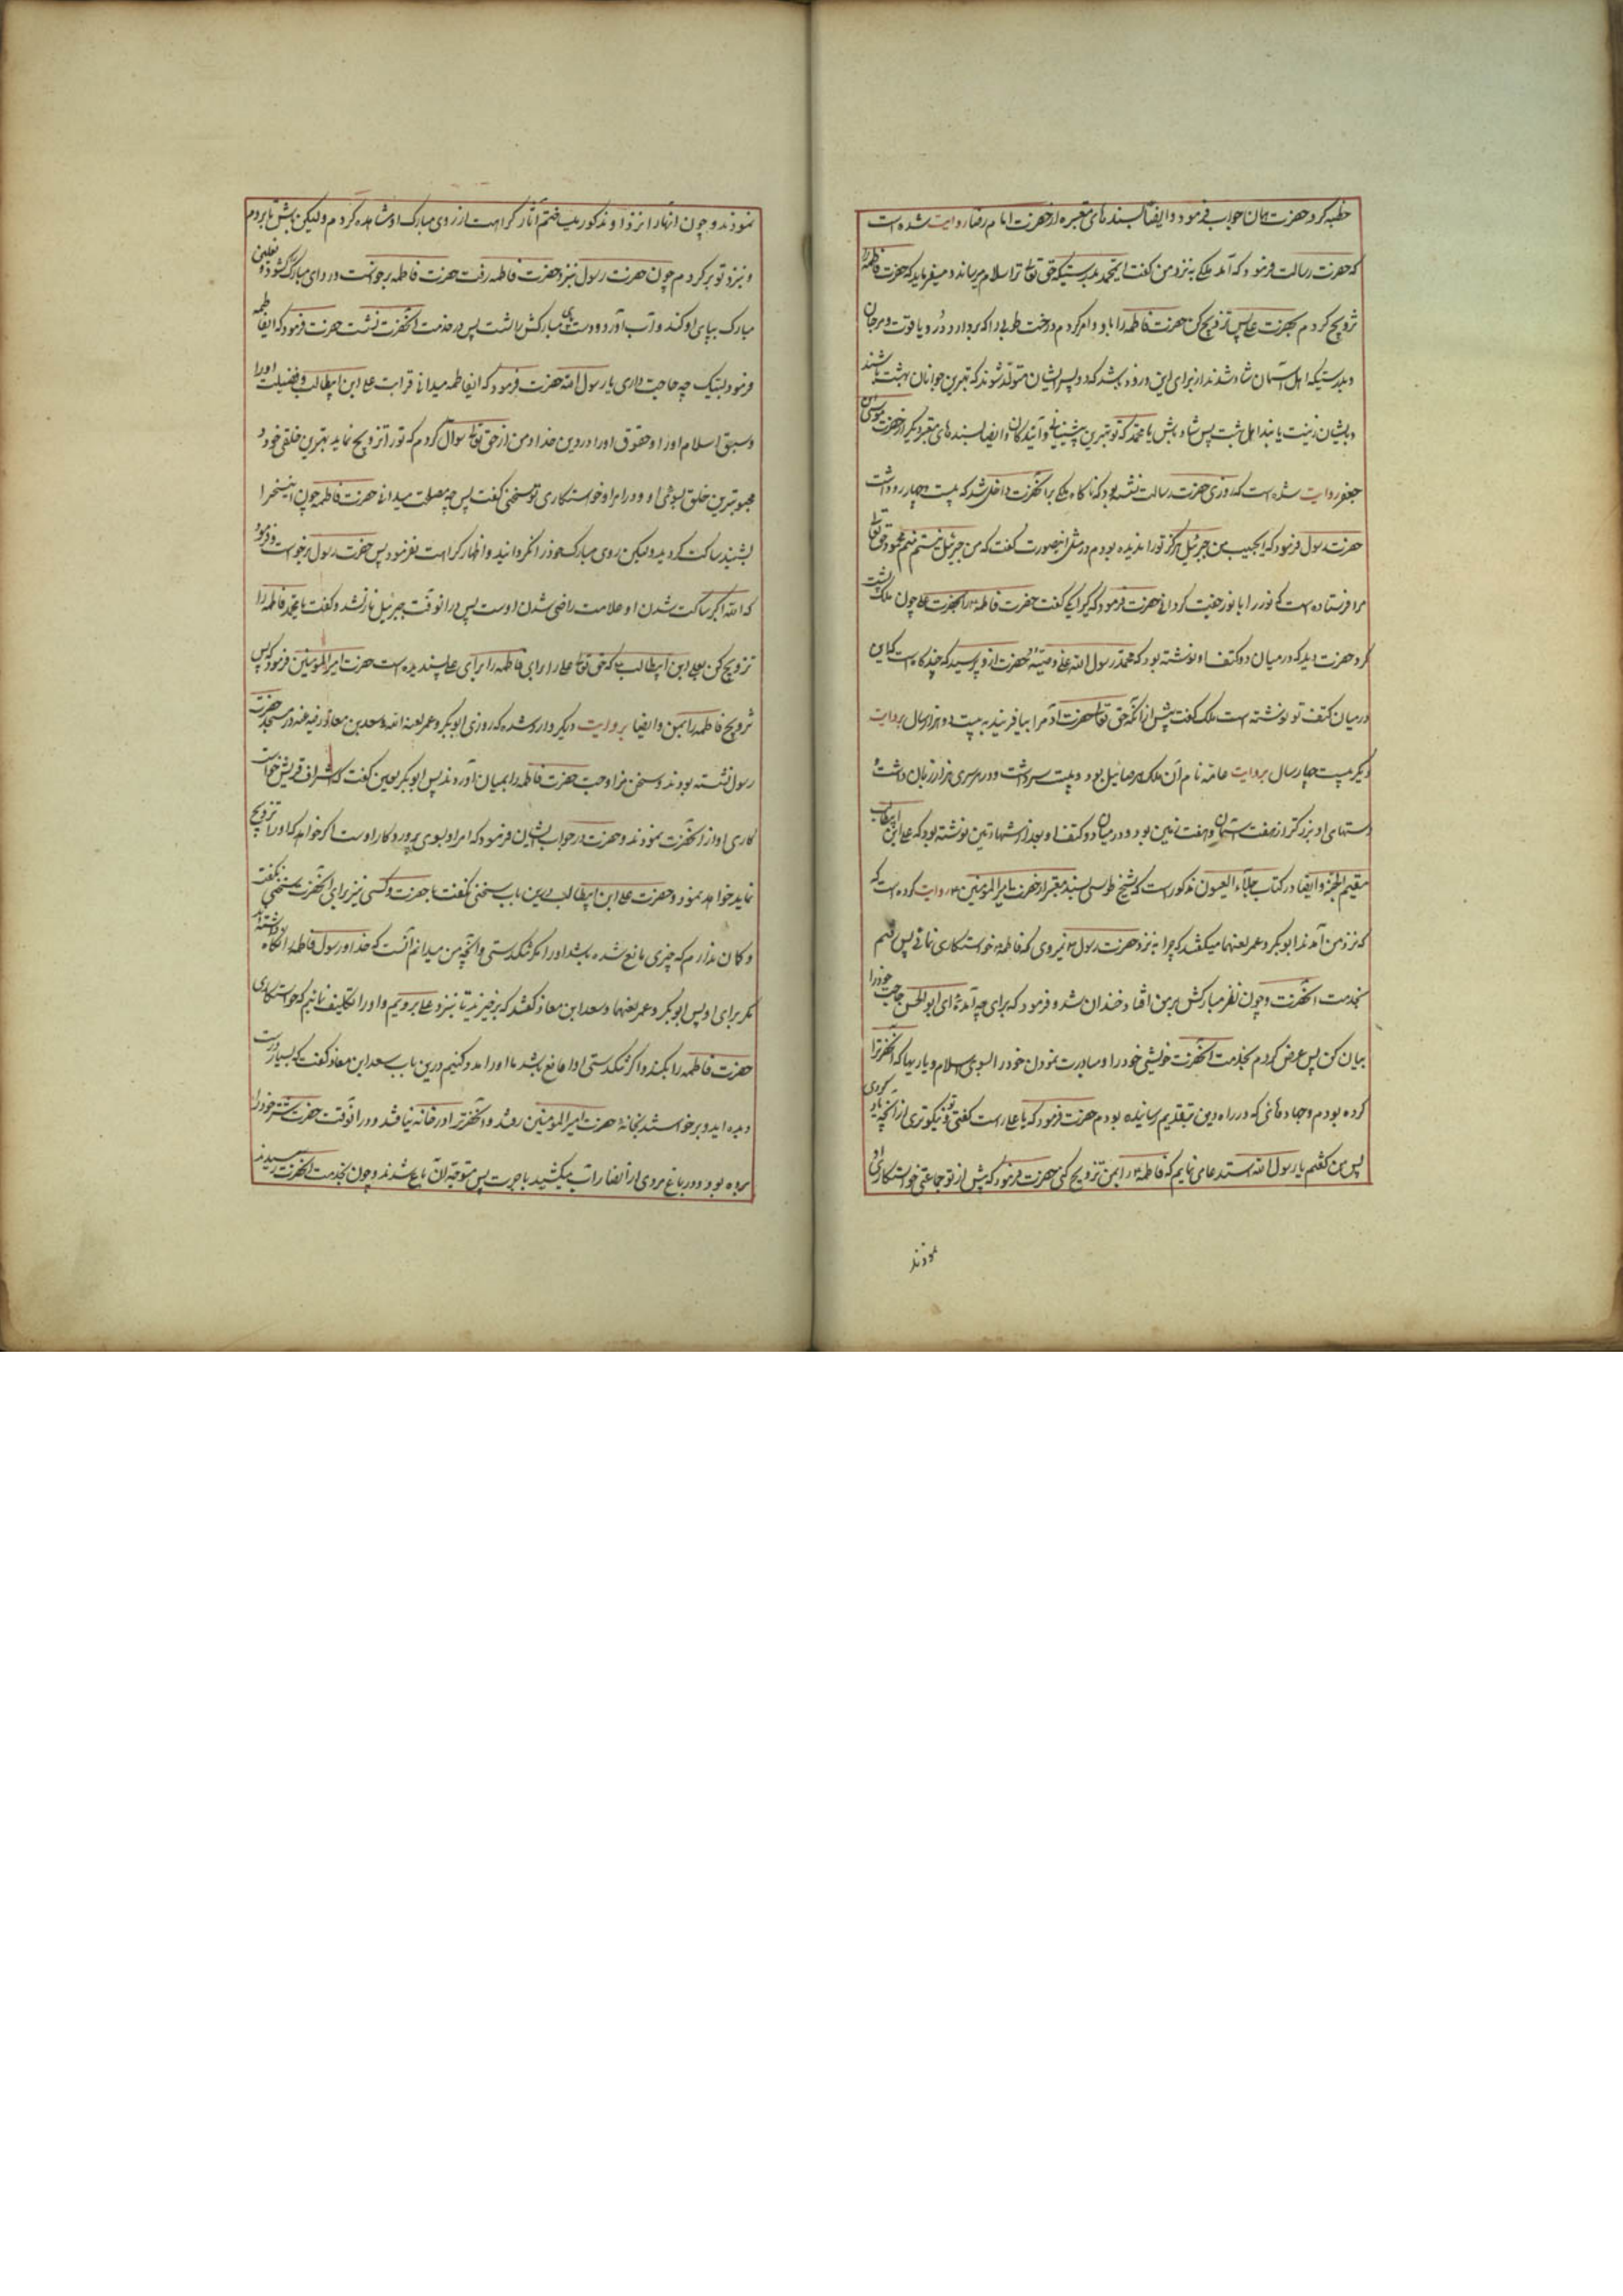 خطبه کرد حضرت همان جواب فرمود و ایضا بسندهای معتبره از حضرت امام رضا روایت شده است
که حضرت رسالت فرمود که آمد ملکی به نزد من گفت ایمحمد بدرستیکه حق تعالی ترا سلام میرساند و میفرماید که حضرت فاطمه را
تزویج کردم بحضرت علی پس تزویج کن حضرت فاطمه را باو و امر کردم درخت طوبی را که بردارد در و یاقوت و مرجان
و بدرستیکه اهل آسمان شاد شدند از برای این و زود باشد که دو پسر ایشان متولد شوند که بهترین جوانان بهشت باشند
و بایشان زینت یابند اهل بهشت پس شاد باش یا محمد که تو بهترین پیشینیانی و آیندگان و ایضا بسندهای معتبر دیگر از حضرت موسی ابن
جعفر روایت شده است که روزی حضرت رسالت نشسته بود که ناگاه ملکی بر آنحضرت داخل شد که بیست و چهار رو داشت
حضرت رسول فرمود که ایحبیب من جبرئیل هرگز تو را ندیده بودم در مثل اینصورت گفت که من جبرئیل نیستم منم محمود حق تعالی
مرا فرستاده است که نور را با نور جفت گردانی حضرت فرمود که کرا بکی گفت حضرت فاطمه را بحضرت علی چون ملک پشت
کرد حضرت دید که در میان دو کتف او نوشته بود که محمد رسول الله علی وصیه حضرت از او پرسید که چند گاه است که این
در میان کتف تو نوشته است ملک گفت پیش از آنکه حق تعالی حضرت آدم را بیافریند به بیست و دو هزار سال بروایت
دیگر بیست چهار سال بروایت عامه نام آن ملک صرصائیل بود و بیست سر داشت و در هر سری هزار زبان داشت و
دستهای او بزرگتر از هفت آسمان و هفت زمین بود و در میان دو کتف او بعد از شهادتین نوشته بود که علی ابن ابیطالب
مقیم الحجة و ایضا در کتاب جلاء العیون مذکور است که شیخ طوسی بسند معتبر از حضرت امیرالمومنین روایت کرده است که
که نزد من آمدند ابوبکر و عمر لعنهما میگفتند که چرا به نزد حضرت رسول نمیروی که فاطمه خواستکاری نمائی پس رفتم
بخدمت آنحضرت و چون نظر مبارکش بر من افتاد خندان شد و فرمود که برای چه آمدهٔ ای ابوالحسن حاجت خود را
بیان کن پس عرض کردم بخدمت آنحضرت خویشی خود را و مبادرت نمودن خود را بسوی اسلام و یاریها که آنحضرترا
کرده بودم و جهادهائی که در راه دین بتقدیم رسانیده بودم حضرت فرمود که یا علی راست گفتی و تو نیکوتری از آنچه یاد کردی
پس من گفتم یا رسول الله استدعا می نمایم که فاطمه را بمن تزویج کنی حضرت فرمود که پیش از تو جماعتی خواستکاری او
نمودند
نمودند و چون انهار انزد او مذکور میساختم آثار کراهت از روی مبارک او مشاهده کردم ولیکن باش تا بروم
و نزد تو برگردم چون حضرت رسول نبزد حضرت فاطمه رفت حضرت فاطمه برجست و ردای مبارک گشود و نعلین
مبارک بپای او کند و آب آورد و دست و پای مبارکش را بشست پس در خدمت آنحضرت نشست حضرت فرمود که ایفاطمه
فرمود لبیک چه حاجت داری یا رسول الله حضرت فرمود که ایفاطمه میدانی قرابت علی ابن ابیطالب و فضیلت او را
و سبق اسلام او را و حقوق او را در دین خدا و من از حق تعالی سوال کردم که تو را تزویج نماید بهترین خلق خود و
محبوبترین خلق بسوی او و در امر او خواستکاری تو سخنی گفت پس چه مصلحت میدانی حضرت فاطمه چون اینسخن را
بشنید ساکت گردید ولیکن روی مبارک خود را نگردانید و اظهار کراهت نفرمود پس حضرت رسول برخواست و فرمود
که الله اکبر ساکت شدن او علامت راضی شدن اوست پس در انوقت جبرئیل نازل شد و گفت یا محمد فاطمه را
تزویج کن بعلی ابن ابیطالب که حق تعالی علی را برای فاطمه و فاطمه را برای علی پسندیده است حضرت امیرالمومنین فرمود که پس
تزویج فاطمه را بمن و ایضا بروایت دیگر وارد شده که روزی ابوبکر و عمر لعنة الله و سعد بن معاذ رضی عنه در مسجد حضرت
رسول نشسته بودند و سخن مزاوجت حضرت فاطمه را بمیان آوردند پس ابوبکر لعین گفت که اشراف قریش خواست
کاری او از آنحضرت نمودند و حضرت در جواب ایشان فرمود که امر او بسوی پروردگار اوست اگر خواهد که او را تزویج
نماید خواهد نمود و حضرت علی ابن ابیطالب درین باب سخنی نگفت با حضرت و کسی نیز برای آنحضرت سخنی نگفت
و گمان ندارم که چیزی مانع شده باشد او را مگر تنگدستی و آنچه من میدانم آنست که خدا و رسول فاطمه را نگاه نداشته اند
مگر برای او پس ابوبکر و عمر لعنهما و سعد ابن معاذ گفتند که برخیزید تا بنزد علی برویم و او را تکلیف نمائیم که خواستکاری
حضرت فاطمه را بکند و اگر تنگدستی او را مانع باشد ما او را مدد کنیم درین باب سعد ابن معاذ گفت که بسیار درست
دیده اید و برخواستند بخانهٔ حضرت امیرالمومنین رفتند و آنحضرترا در خانه نیافتند و در انوقت حضرت شتر خود را
برده بود و در باغ مردی از انصار آب میکشید باجرت پس متوجه آن باغ شدند و چون بخدمت آنحضرت رسیدند